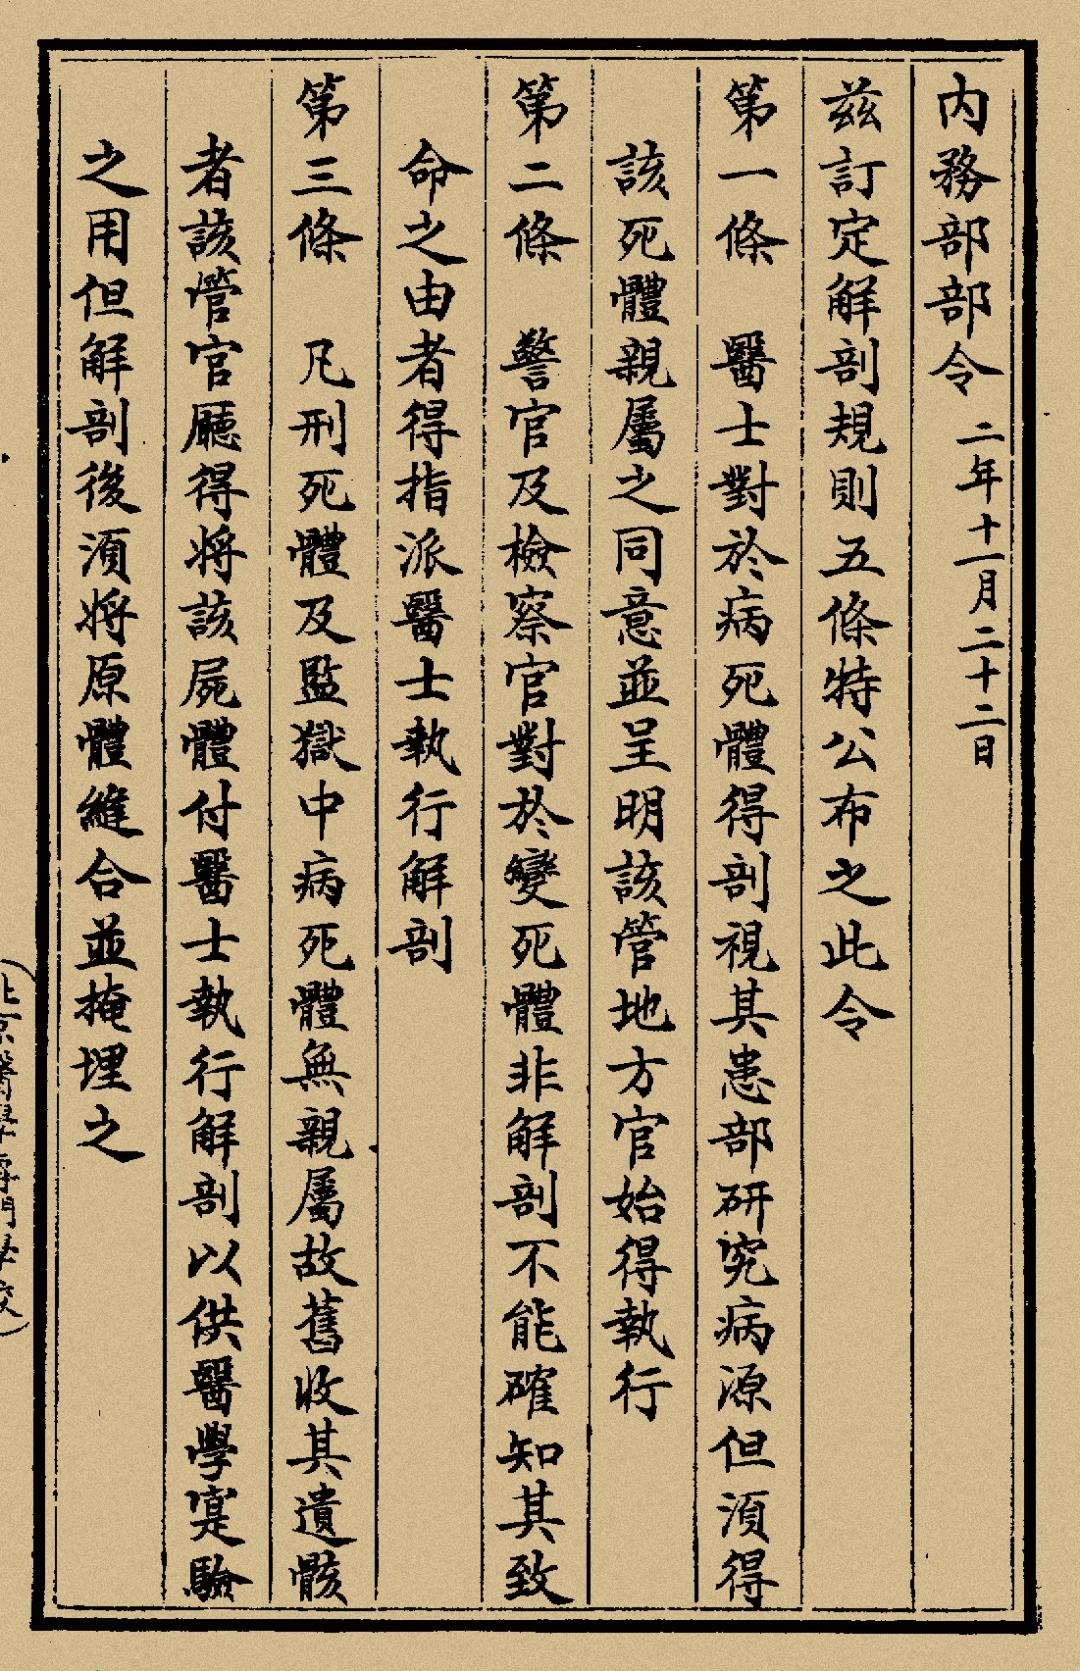 內務部部令 二年十一月二十二日
茲訂定解剖規則五條特公布之此令
第一條 醫士對於病死體得剖視其患部研究病源但須得
該死體親屬之同意並呈明該管地方官始得執行
第二條 警官及檢察官對於變死體非解剖不能確知其致
命之由者得指派醫士執行解剖
第三條 凡刑死體及監獄中病死體無親屬故舊收其遺骸
者該管官廳得將該屍體付醫士執行解剖以供醫學寔驗
之用但解剖後須將原體縫合並掩埋之
北京醫學專門學校